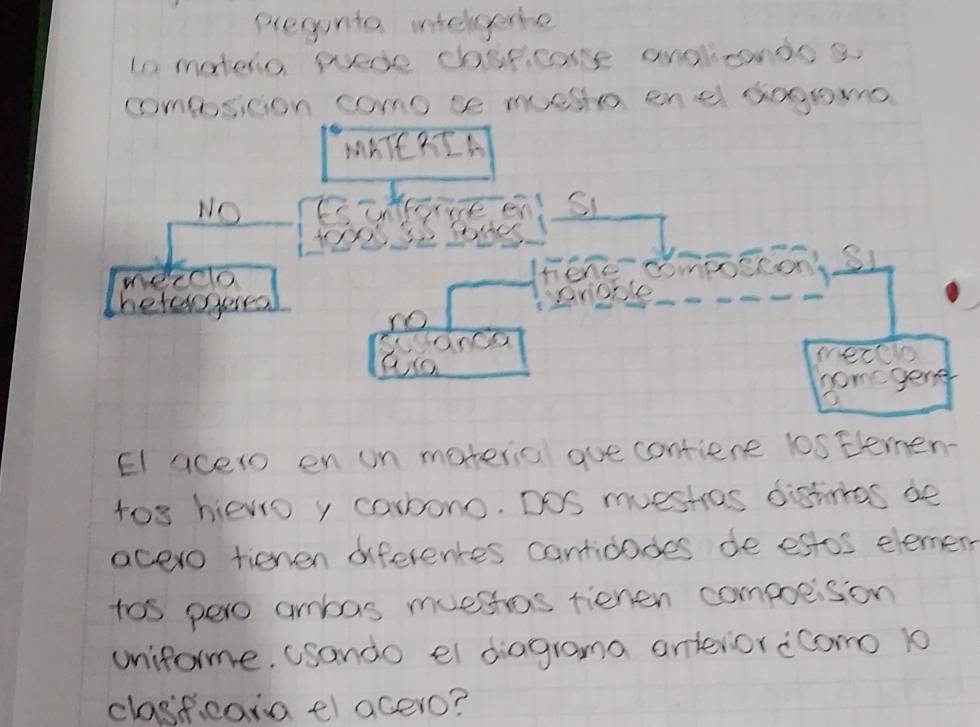 Pregunta inteligente
la materia puede clasificarse analizando su
composicion como se muestra en el diagrama
MATERIA
NO
Es uniforme en
todas sus partes
SI
mezcla
heterogenea
tiene composicion
variable
SI
no
sustancia
pura
mezcla
homogene
a
El acero en un material que contiene los Elemen-
tos hierro y carbono. Dos muestras distintas de
acero tienen diferentes cantidades de estos elemen
tos pero ambas muestras tienen compoeision
uniforme. Usando el diagrama anterior ¿como lo
clasificaria el acero?